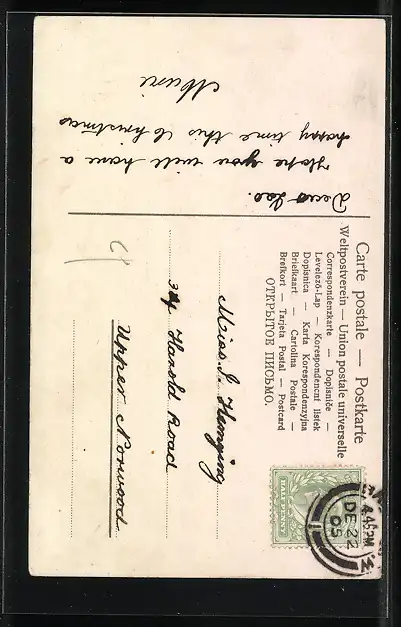 Carte postale — Postkarte
Weltpostverein — Union postale universelle
Correspondenzkarte — Dopisnice —
Levelező-Lap — Korespondencni listek
Dopisnica — Karta Korespondenzyjna
Briefkaart — Cartolina Postale —
Brefkort — Tarjeta Postal — Postcard
ОТКРЫТОЕ ПИСЬМО.
Dear
Hope you will have a
happy time this Christmas
HALF PENNY
4.45 PM
DE 22
05
Miss
Harold Road
Upper Norwood